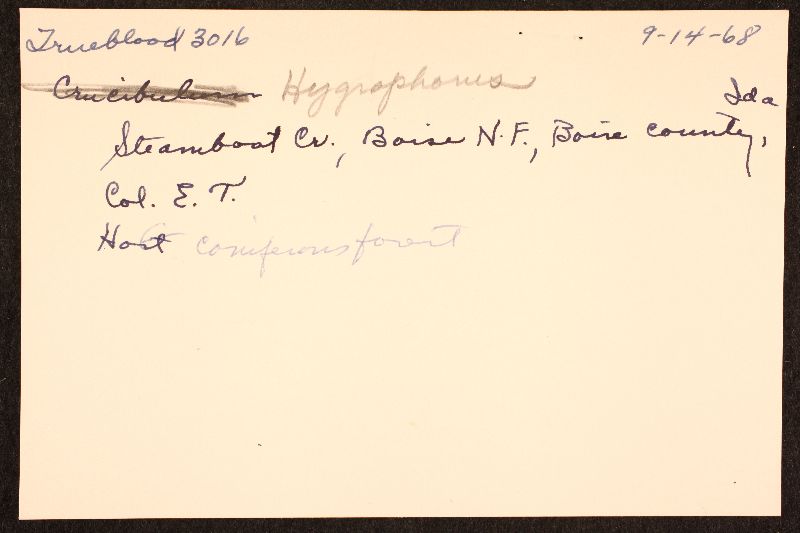 Trueblood 3016 9-14-68
Crucibulum Hygrophorus Ida
Steamboat Cr., Boise N.F., Boise county,
Col. E. T.
Host coniferous forest